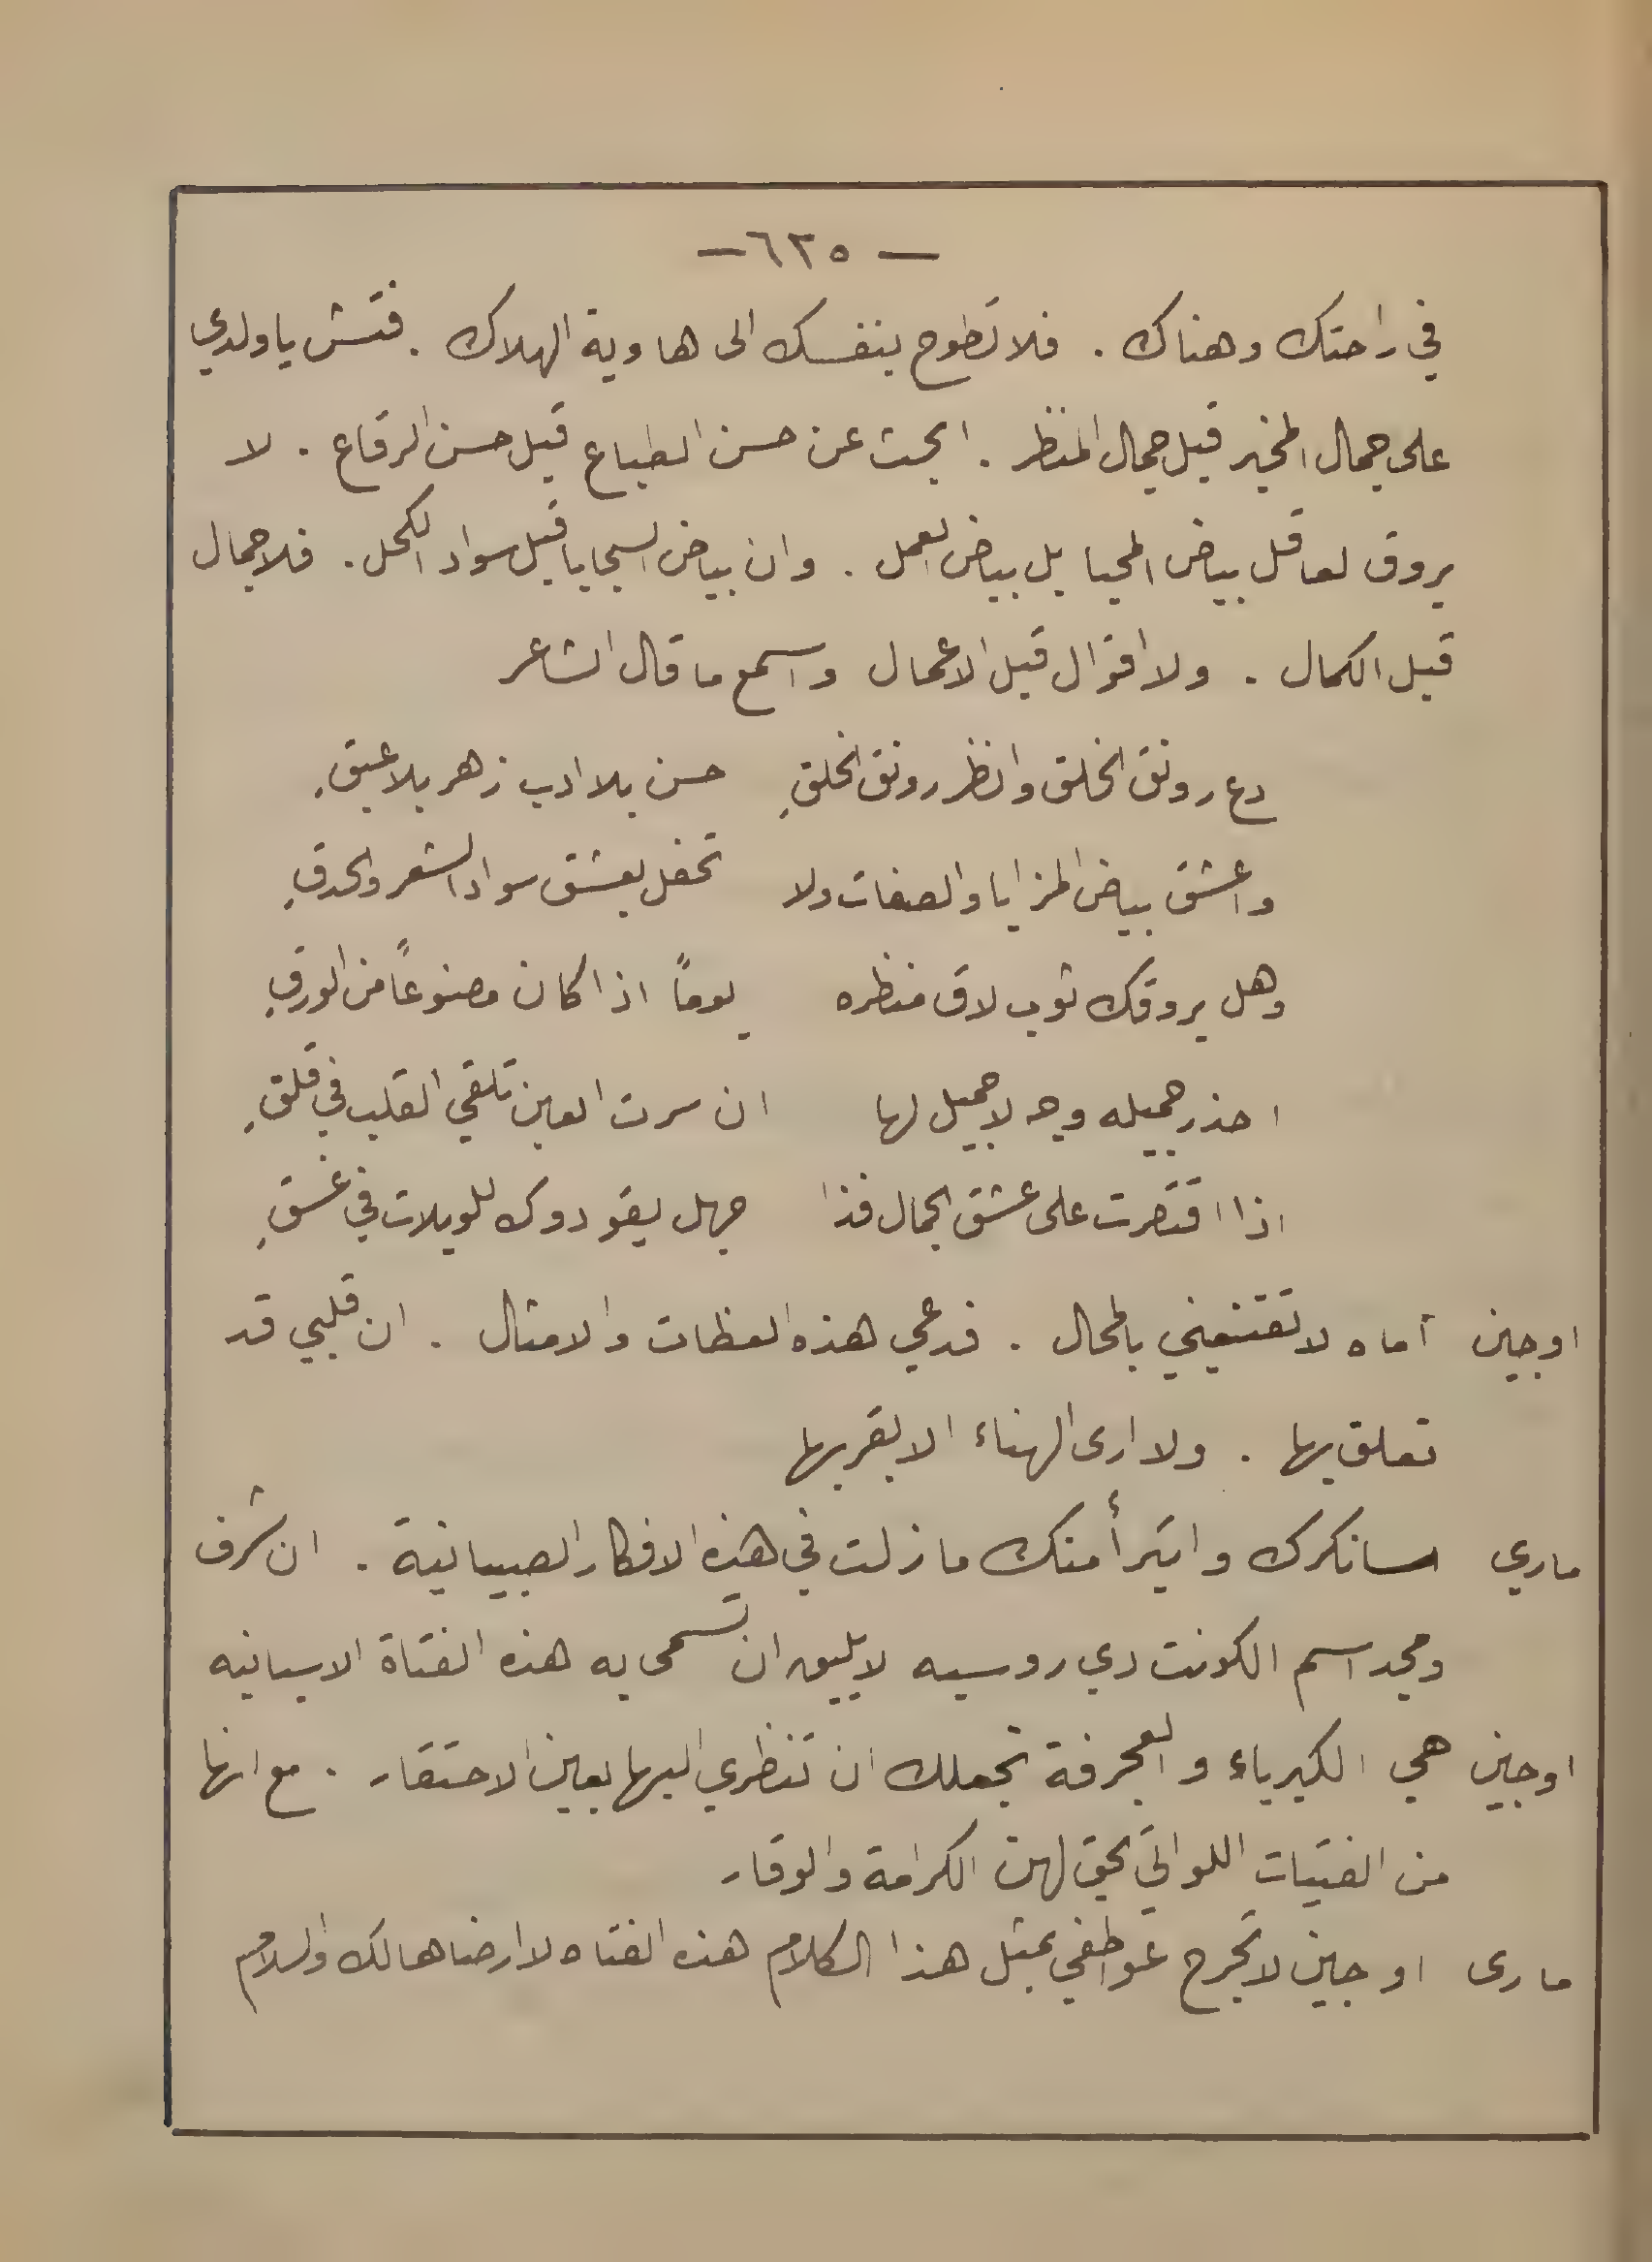 — ٦٢٥ —
في راحتك وهناك . فلا تطوح بنفسك الى هاوية الهلاك . فتش يا ولدي
على جمال المخبر قبل جمال المنظر . ابحث عن حسن الطباع قبل حسن الرقاع . لا
يروق لعاقل بياض المحيا بل بياض العمل . وان بياض السجايا قبل سواد الكحل . فلا جمال
قبل الكمال . ولا اقوال قبل الاعمال واسمع ما قال الشاعر
دع رونق الخلق وانظر رونق الخلقِ حسن بلا ادب زهر بلا عبقِ
واعشق بياض المزايا والصفات ولا تحفل بعشق سواد الشعر والحدقِ
وهل يروقك ثوب لاق منظره يوماً اذا كان مصنوعاً من الورقِ
احذر جميله وجه لا جميل لها ان سرت العين تلقي القلب في قلقِ
اذا اقتصرت على عشق الجمال فذا جهل يقودوك للويلات في غسقِ
اوجين أماه لا تقنعيني بالمحال . فدعي هذه العظات والامثال . ان قلبي قد
تعلق بها . ولا ارى الهناء الا بقربها
ماري سانكرك واتبرأ منك ما زلت في هذه الافكار الصبيانية . ان شرف
ومجد اسم الكونت دي روسيه لا يليق ان تسمى به هذه الفتاة الاسبانيه
اوجين هي الكبرياء والعجرفة تجعلك ان تنظري اليها بعين الاحتقار . مع انها
من الفتيات اللواتي يحق لهن الكرامة والوقار
مارى اوجين لا تجرح عواطفي بمثل هذا الكلام هذه الفتاه لا ارضاها لك والسلام